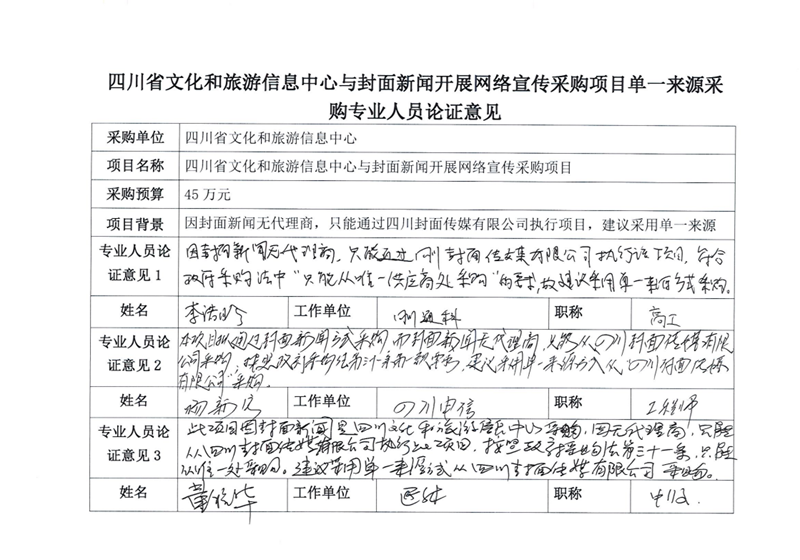 四川省文化和旅游信息中心与封面新闻开展网络宣传采购项目单一来源采
购专业人员论证意见
采购单位 四川省文化和旅游信息中心
项目名称 四川省文化和旅游信息中心与封面新闻开展网络宣传采购项目
采购预算 45 万元
项目背景 因封面新闻无代理商，只能通过四川封面传媒有限公司执行项目，建议采用单一来源
专业人员论 因封面新闻无代理商，只能通过四川封面传媒有限公司执行该项目，符合
证意见 1 政府采购法中“只能从唯一供应商处采购”的要求，故建议采用单一来源方式采购。
姓名 工作单位 职称 高工
专业人员论 封面新闻方式采购，而封面新闻无代理商，从四川封面传媒有限
证意见 2 公司采购，建议采用单一来源方式从四川封面传媒
有限公司采购。
姓名 工作单位 四川电信 职称 工程师
专业人员论 此项目因封面新闻是四川文化和旅游信息中心采购，因无代理商，只能
证意见 3 从四川封面传媒有限公司执行此项目，按照政府采购法第三十一条，只能
从唯一处采购。建议采用单一来源方式从四川封面传媒有限公司采购。
姓名 工作单位 职称